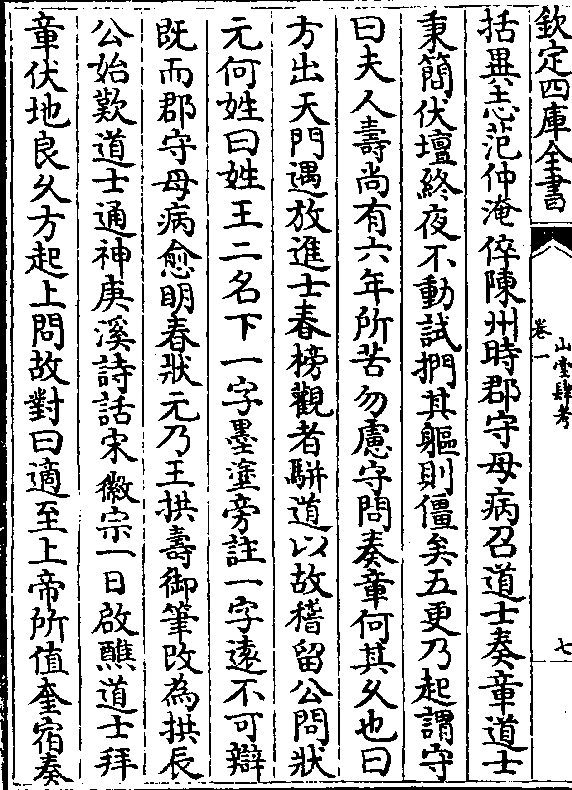 欽定四庫全書
山堂肆考
卷一
七
括異志范仲淹倅陳州時郡守母病召道士奏章道士
秉簡伏壇終夜不動試捫其軀則僵矣五更乃起謂守
曰夫人壽尚有六年所苦勿慮守問奏章何其久也曰
方出天門遇放進士春榜觀者駢道以故稽留公問狀
元何姓曰姓王二名下一字墨塗旁註一字遠不可辯
既而郡守母病愈明春狀元乃王拱壽御筆改為拱辰
公始歎道士通神庚溪詩話宋徽宗一日啟醮道士拜
章伏地良久方起上問故對曰適至上帝所值奎宿奏